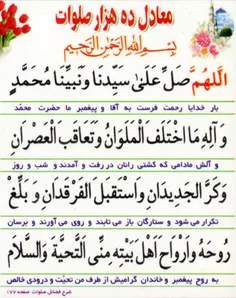 معادل ده هزار صلوات
بِسْمِ اللهِ الرَّحْمنِ الرَّحيمِ
اَللّهُمَّ صَلِّ عَلىٰ سَيِّدِنا وَنَبِيِّنا مُحَمَّدٍ
بار خدایا رحمت فرست به آقا و پیغمبر ما حضرت محمد
وَ آلِهِ مَا اخْتَلَفَ الْمَلَوانِ وَتَعاقَبَ الْعَصْرانِ
و آلش مادامی که کشتی رانان در رفت و آمدند و شب و روز
وَكَرَّ الْجَديدانِ وَاسْتَقْبَلَ الْفَرْقَدانِ وَ بَلِّغْ
تکرار می شود و ستارگان باز می تابند و روی می آورند و برسان
رُوحَهُ وَاَرْواحَ اَهْلِ بَيْتِهِ مِنِّى التَّحِيَّةَ وَالسَّلامَ
به روح پیغمبر و خاندان گرامیش از طرف من تحیت و درودی خالص
شرح فضائل صلوات صفحه ۱۷۷